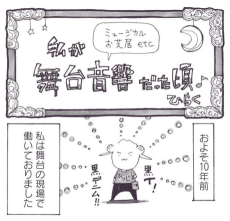 私が
ミュージカル
お芝居 etc
舞台音響だった頃♪
ひらく
およそ10年前
私は舞台の現場で
働いておりました
黒T!
黒デニム!!